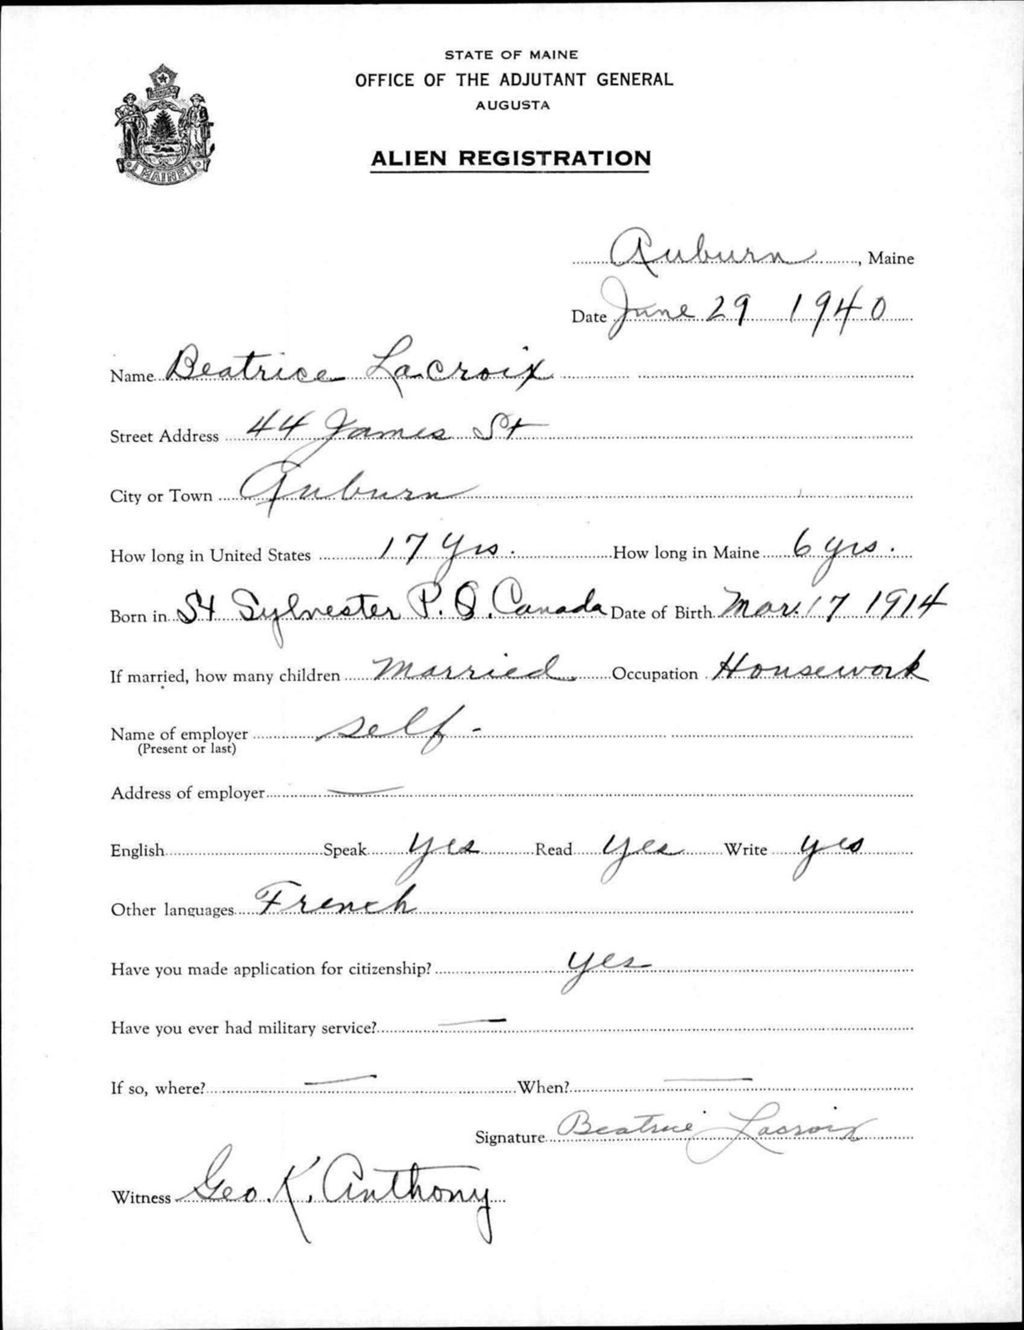 STATE OF MAINE
OFFICE OF THE ADJUTANT GENERAL
AUGUSTA
ALIEN REGISTRATION
MAINE
Auburn, Maine
Date June 29 1940
Name Beatrice LaCroix
Street Address 44 James St
City or Town Auburn
How long in United States 17 Yrs. How long in Maine 6 yrs.
Born in St Sylvester P.Q. Canada Date of Birth Mar. 17 1914
If married, how many children Married. Occupation Housework
Name of employer self -
(Present or last)
Address of employer —
English Speak yes Read yes Write yes
Other languages French
Have you made application for citizenship? yes
Have you ever had military service? —
If so, where? — When? —
Signature Beatrice Lacroix
Witness Geo. K. Anthony